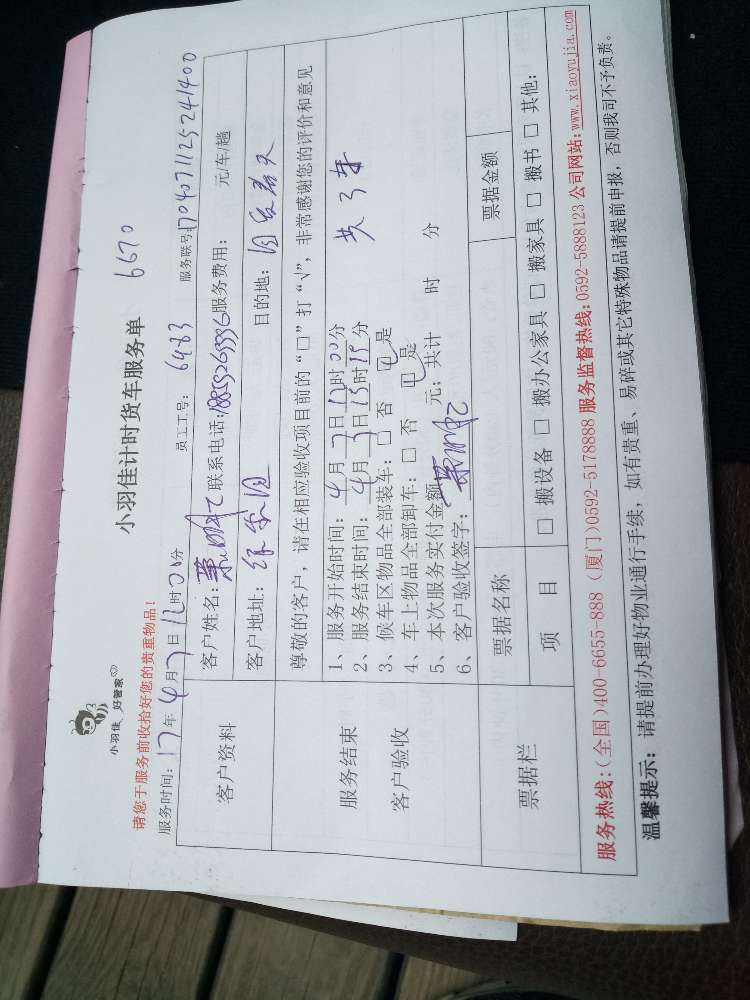 小羽佳 好管家
小羽佳计时货车服务单
6670
请您于服务前收拾好您的贵重物品!
服务时间: 17年 4月 7日 12时 00分
员工工号: 6483
服务联号: 170407112524 1400
客户资料
客户姓名: 联系电话: 服务费用: 元/车/趟
客户地址: 目的地:
服务结束
客户验收
尊敬的客户，请在相应验收项目前的“□”打“√”，非常感谢您的评价和意见
1、服务开始时间: 4月 7日 12时 00分
2、服务结束时间: 4月 7日 15时 15分
3、候车区物品全部装车: □ 否 □ 是
4、车上物品全部卸车: □ 否 □ 是
5、本次服务实付金额 元; 共计 时 分
6、客户验收签字:
票据栏
票据名称
票据金额
项 目
□ 搬设备 □ 搬办公家具 □ 搬家具 □ 搬书 □ 其他:
服务热线:(全国)400-6655-888 (厦门)0592-5178888 服务监督热线:0592-5888123 公司网站:www.xiaoyujia.com
温馨提示: 请提前办理好物业通行手续，如有贵重、易碎或其它特殊物品请提前申报，否则我司不予负责。